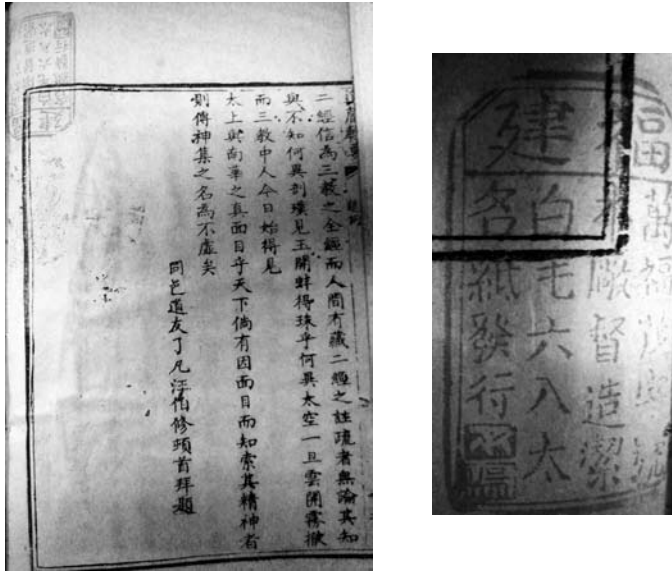 二經信為三教之全經而人間有藏二經之註疏者無論其知
與不知何異剖璞見玉開蚌得珠乎何異太空一旦雲開霧撤
而三教中人今日始得見
太上與南華之真面目乎天下倘有因面目而知索其精神者
則傳神集之名為不虛矣
同邑道友了凡汪伯修頓首拜題
福建
本廠督造潔
白毛六八太
名紙發行